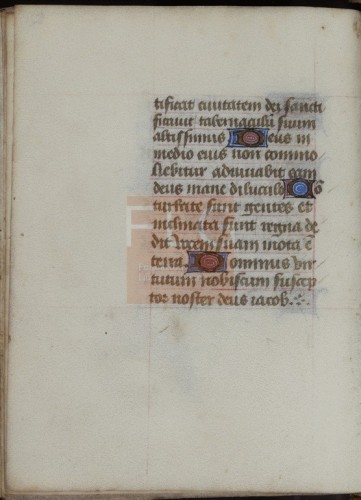 tificat ciuitatem dei sancti
ficauit tabernaculũ suum
altissimus Deus in
medio eius non commo
uebitur adiuuabit eam
deus mane diluculo Cõ
turbate sunt gentes et
inclinata sunt regna de
dit vocem suam mota ẽ
terra Dominus vir
tutum nobiscum suscep
tor noster deus iacob.